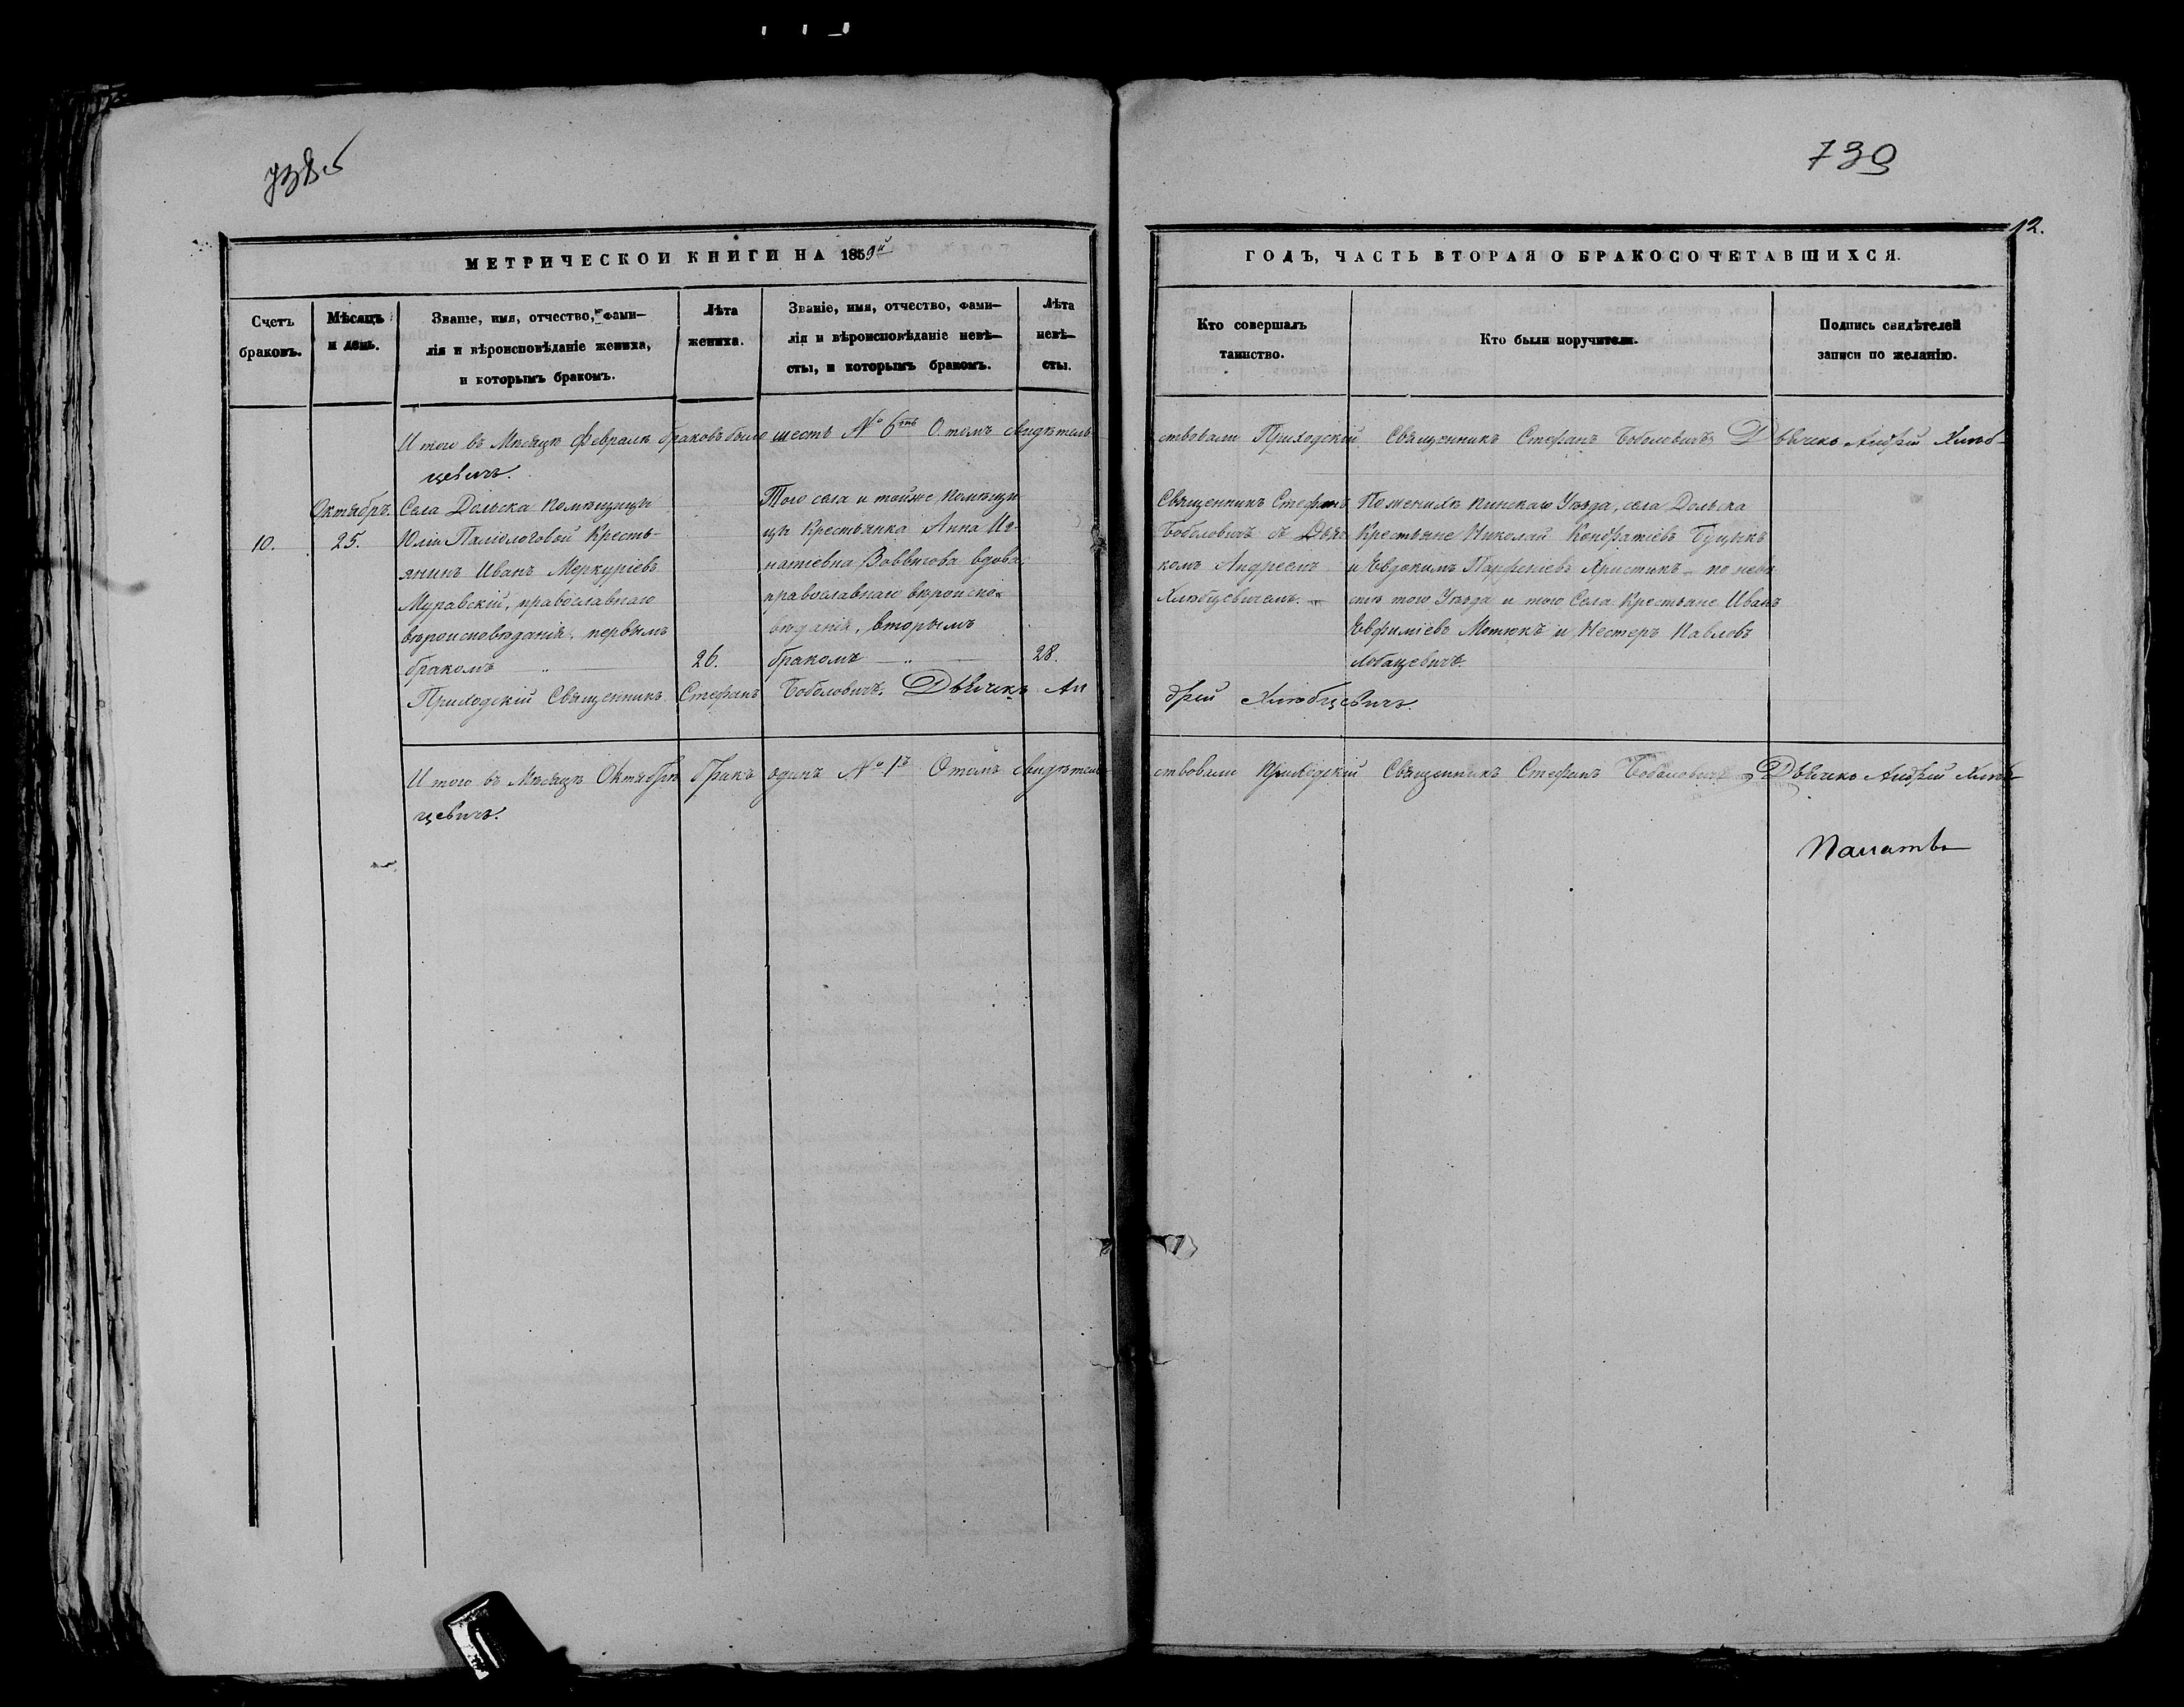 738 об
739
12.
МЕТРИЧЕСКОЙ КНИГИ НА 1859й
ГОДЪ, ЧАСТЬ ВТОРАЯ О БРАКОСОЧЕТАВШИХСЯ.
Счетъ
браковъ.
Мѣсяцъ
и день.
Званіе, имя, отчество, фами-
лія и вѣроисповѣданіе жениха,
и которымъ бракомъ.
Лѣта
жениха.
Званіе, имя, отчество, фами-
лія и вѣроисповѣданіе невѣ-
сты, и которымъ бракомъ.
Лѣта
невѣ-
сты.
Кто совершалъ
таинство.
Кто были поручители.
Подпись свидѣтелей
записи по желанію.
Итого въ Мѣсяцѣ Февралѣ браковъ было шесть № 6ть О томъ свидѣтель-
ствовали Приходскій Священникъ Стефанъ Боболовичъ Дьячекъ Андрей Хлѣб-
цевичъ.
10.
Октябръ.
25.
Села Дольска помѣщицы
Юліи Палеологовой Кресть-
янинъ Иванъ Меркуріевъ
Муравскій, православнаго
вѣроисповѣданія, первымъ
бракомъ
26.
Того села и тойже помѣщи-
цы Крестьянка Анна Иг-
натіевна вдова,
православнаго вѣроиспо-
вѣданія, вторымъ
бракомъ
28.
Священникъ Стефанъ
Боболовичъ съ Дьяч-
комъ Андреемъ
Хлѣбцевичемъ.
По женихѣ Пинскаго Уѣзда, села Дольска
Крестьяне Николай Кондратіевъ Буцикъ
и Евдокимъ Парфеніевъ Христикъ - по невѣ-
стѣ того Уѣзда и того Села Крестьяне Иванъ
Евфиміевъ Мотюкъ и Нестеръ Павловъ
Лобацевичъ.
Приходскій Священникъ Стефанъ Боболовичъ. Дьячекъ Ан-
дрей Хлѣбцевичъ.
Итого въ Мѣсяцѣ Октябрѣ бракъ одинъ № 1ъ О томъ свидѣтель-
ствовали Приходскій Священникъ Стефанъ Боболовичъ Дьячекъ Андрей Хлѣб-
цевичъ.